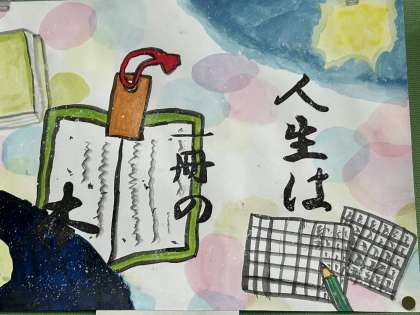 人生は
一冊の
本